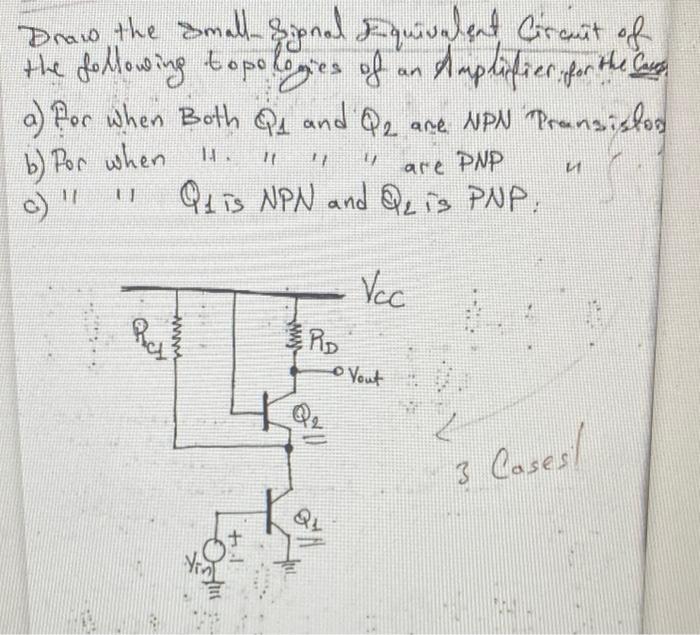 Draw the Small-Signal Equivalent Circuit of
the following topologies of an Amplifier, for the Cases
a) For when Both Q1 and Q2 are NPN Transistors
b) For when 11. 11 11 11 are PNP 11
c) 11 11 Q1 is NPN and Q2 is PNP.
Vcc
RC1
RD
Vout
Q2
3 Cases!
Q1
+
-
Vin